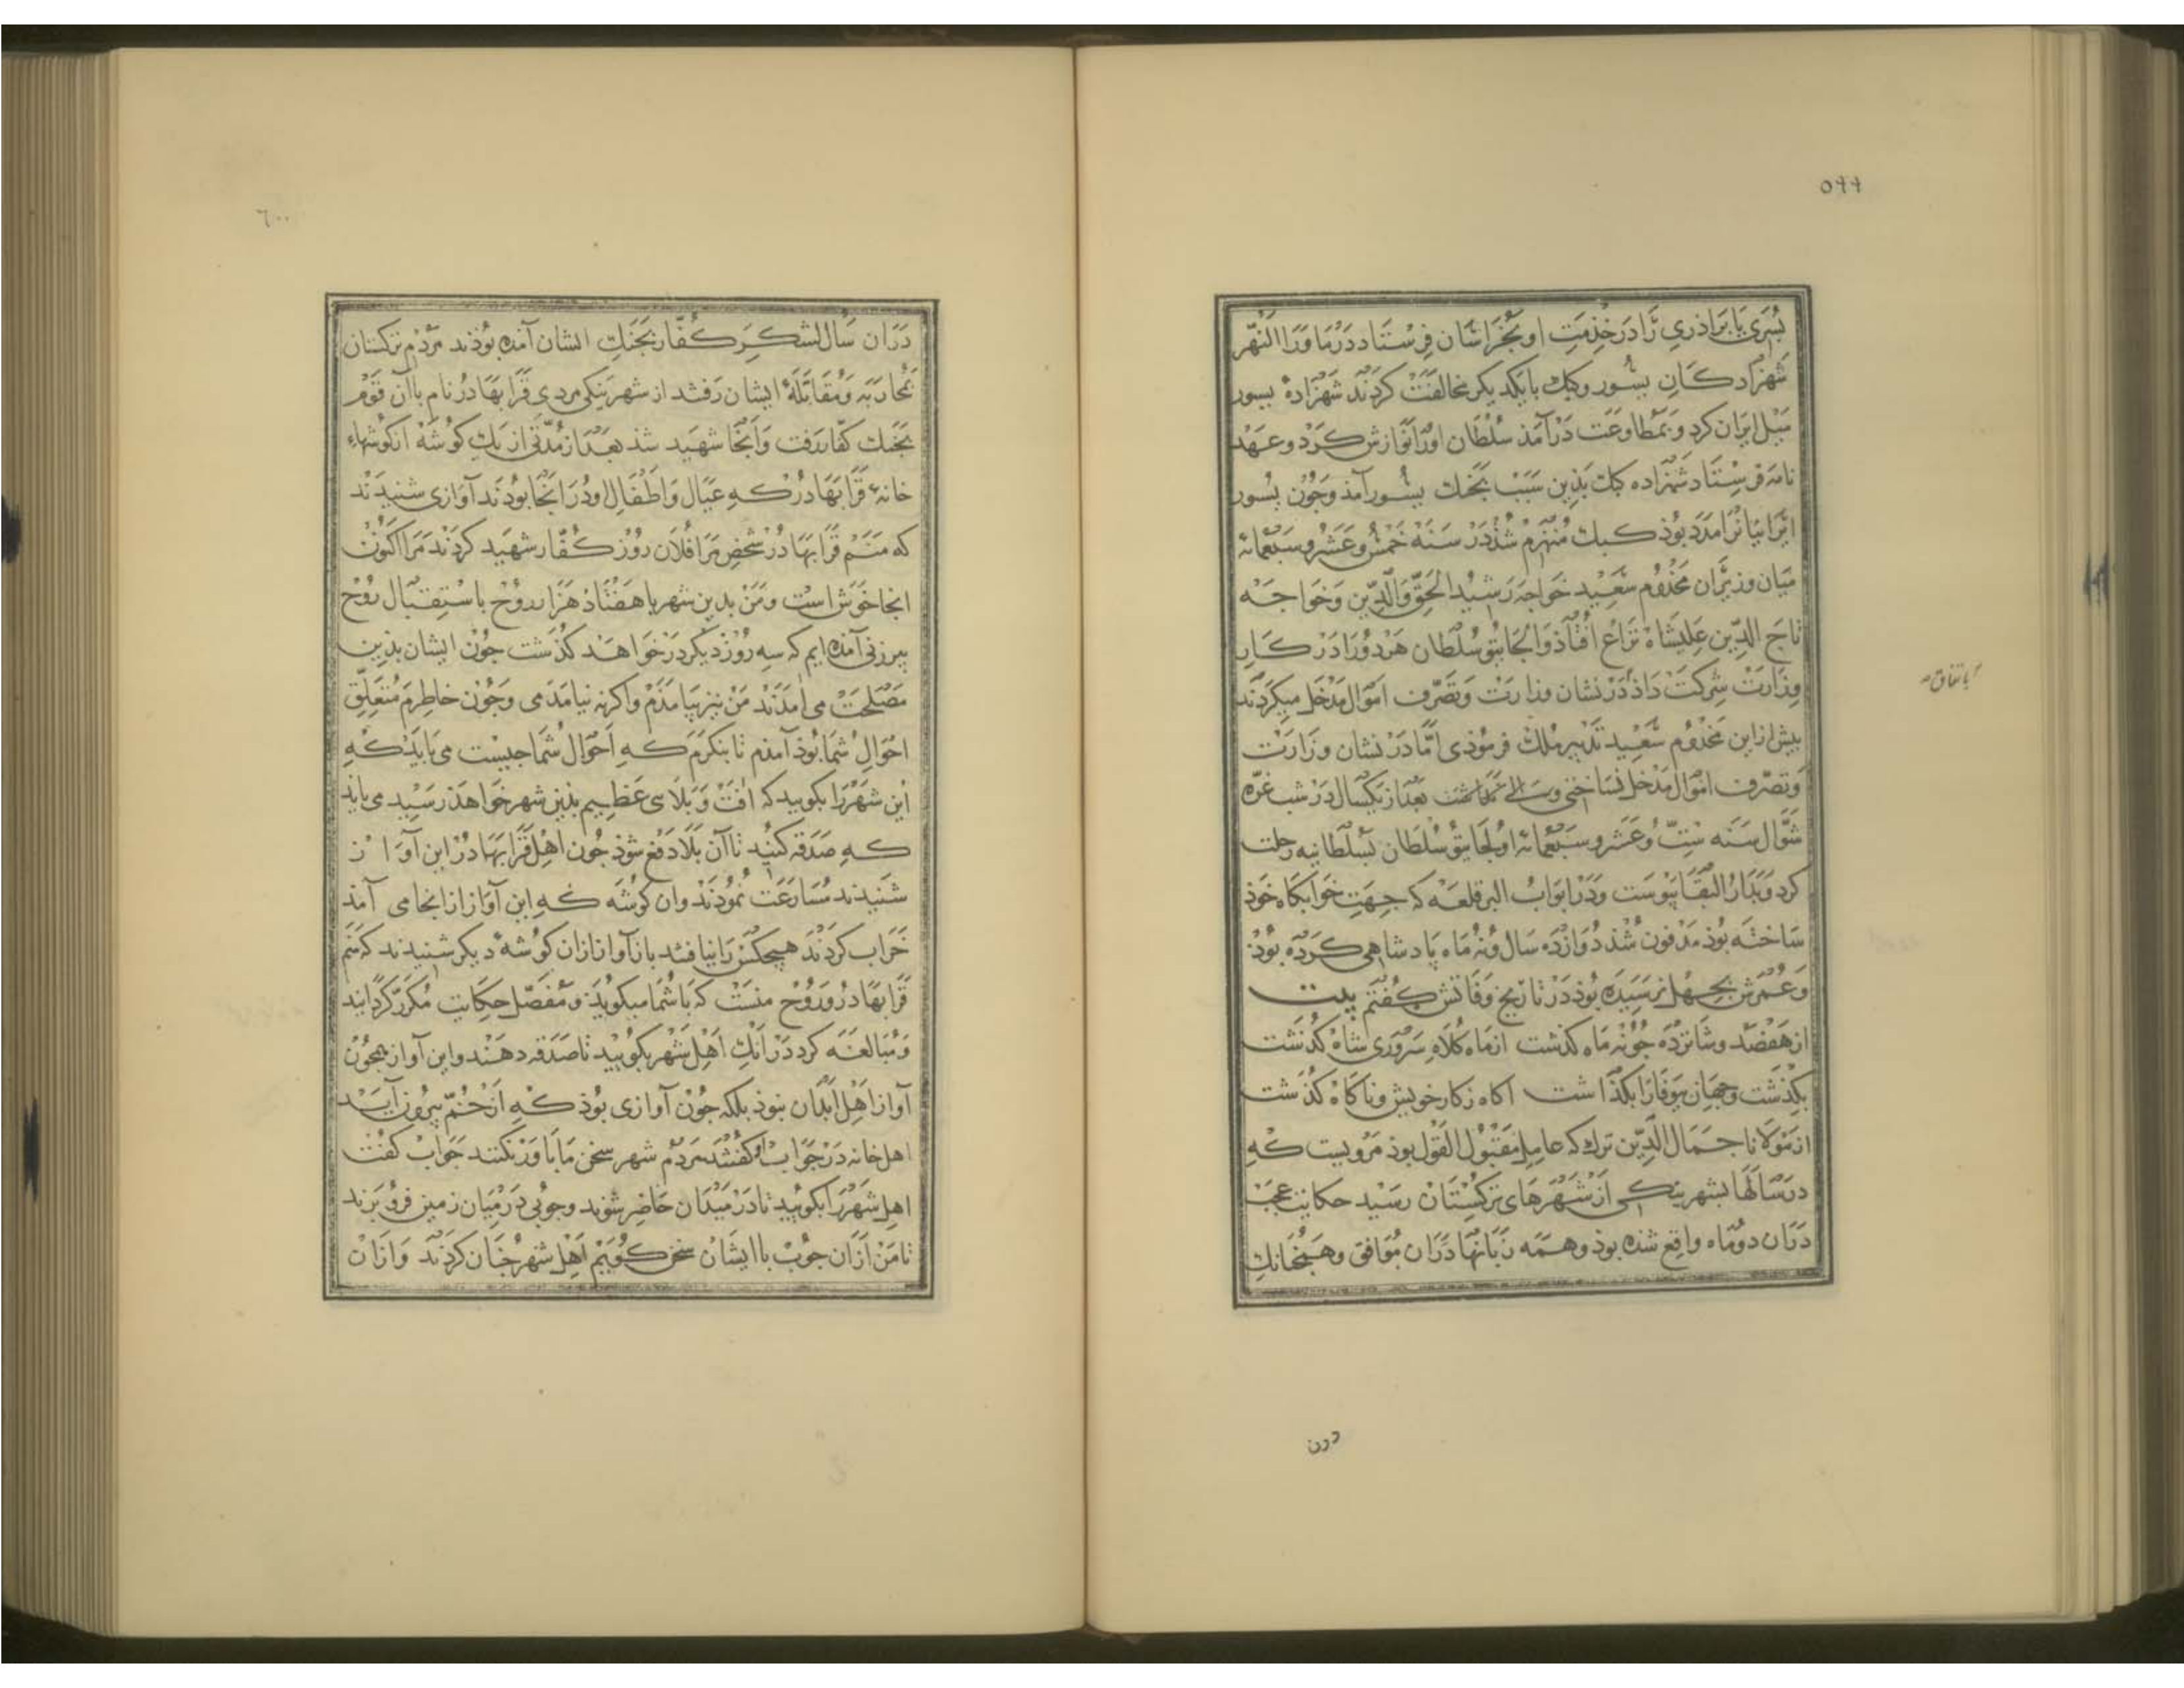 ۵۹۹
بسری یا براذری را در خذمت او بخراسان فرستاد در ماورا النهر
شهزادکان یسور و کبک بایکدیکر مخالفت کردند شهزاده یسور
میل ایران کرد و بمطاوعت درآمذ سلطان اورا نوازش کرد و عهد
نامه فرستاد شهزاده کبک بذین سبب بجنک یسور آمذ و چون یسور
ایرانیانرا مدد بوذ کبک منهزم شذ در سنه خمس و عشر و سبعمائه
میان وزیران مخذوم سعید خواجه رشید الحق والدین و خواجه
تاج الدین علیشاه نزاع افتاذ و الجایتو سلطان هر دو را در کار
وزارت شرکت داذ در نشان وزارت و تصرف اموال مدخل میکردند
باتفاق
بیش از این مخذوم سعید تدبیر ملک فرموذی اما در نشان وزارت
و تصرف اموال مدخل نساختی و بعد از یکسال در شب غره
شوال سنه ست و عشر و سبعمائه اولجایتو سلطان بسلطانیه رحلت
کرد و بدار البقا پیوست و در ابواب البر قلعه که جهت خوابکاه خوذ
ساخته بوذ مدفون شذ دوازده سال و نه ماه پادشاهی کرده بوذ
و عمرش بچهل نرسیده بوذ در تاریخ وفاتش کفتم بیت
از هفصد و شانزده چو نه ماه کذشت از ماه کلاه سروری شاه کذشت
بکذشت و جهان بیوفا را بکذاشت اکاه ز کار خویش و ناکاه کذشت
از مولانا جمال الدین ترک که عامل مقبول القول بوذ مرویست که
در سالها بشهر ینکی از شهرهای ترکستان رسید حکایت عجب
دران دو ماه واقع شده بوذ و همه زبانها دران موافق و همچنانک
درن
٦٠٠
دران سال لشکر کفار بجنک ایشان آمده بوذند مردم ترکستان
بمحاربه و مقابله ایشان رفتند از شهر ینکی مردی قرابهادر نام باآن قوم
بجنک کفار رفت و آنجا شهید شذ بعد از مدتی از یک کوشه از کوشهاء
خانه قرابهادر که عیال و اطفال او در آنجا بودند آوازی شنیدند
که منم قرابهادر شخص مرا فلان روز کفار شهید کردند مرا اکنون
انجا خوش است و من بدین شهر با هفتاد هزار روح باستقبال روح
پیرزنی آمده ایم که سه روز دیکر در خواهد کذشت چون ایشان بذین
مصلحت می امدند من نیز بیامذم و اکر نه نیامدمی و چون خاطرم متعلق
احوال شما بوذ آمذم تا بنکرم که احوال شما چیست می باید که
این شهر را بکویید که افت و بلای عظیم بذین شهر خواهذ رسید می باید
که صدقه کنید تا آن بلا دفع شوذ چون اهل قرابهادر این آواز
شنیدند مسارعت نموذند وان کوشه که این آواز از انجا می آمد
خراب کردند هیچکس را نیافتند باز آواز ازان کوشه دیکر شنیدند که منم
قرابهادر و روح منست که با شما میکوید و مفصل حکایت مکرر کردانید
و مبالغه کرد در آنک اهل شهر بکویید تا صدقه دهند و این آواز همچون
آواز اهل ابدان نبوذ بلکه چون آوازی بوذ که از خم بیرون آید
اهل خانه در جواب او کفتند مردم شهر سخن ما باور نکنند جواب کفت
اهل شهر را بکویید تا در میدان حاضر شوند و چوبی در میان زمین فرو برند
تا من ازان چوب باایشان سخن کویم اهل شهر چنان کردند و ازان